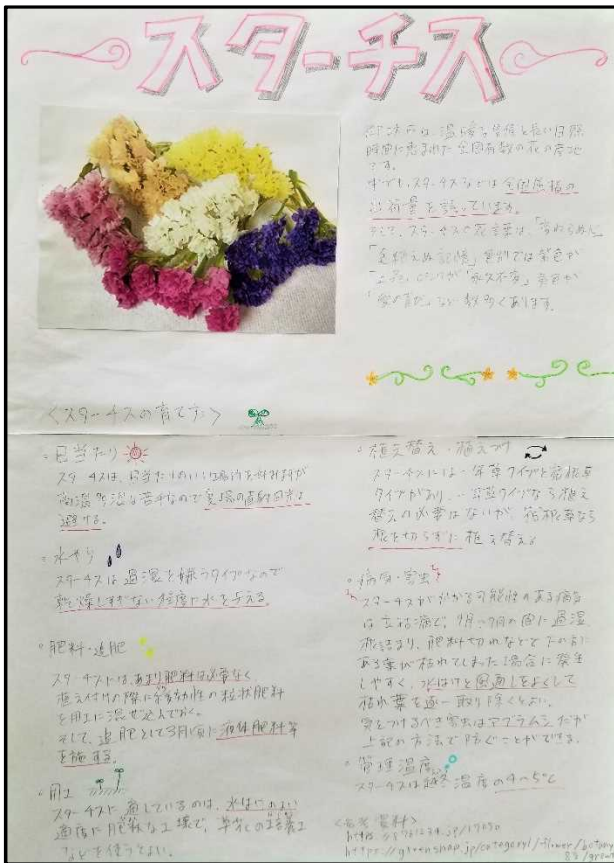 スターチス
御坊市は、温暖な気候と長い日照
時間に恵まれた全国有数の花の産地
です。
中でも、スターチスなどは全国屈指の
出荷量を誇っています。
スターチスの花言葉は、「変わらぬ心」
「途絶えぬ記憶」色別では紫色が
ピンクが「永久不変」黄色が
など数多くあります。
〈スターチスの育て方〉
。日当たり
スターチスは、日当たりのいい場所を好みますが
高温多湿は苦手なので真夏の直射日光を
避ける。
。水やり
スターチスは過湿を嫌うタイプなので
乾燥しすぎない程度に水を与える。
。肥料・追肥
スターチスは、あまり肥料は必要なく
植え付けの際に緩効性の粒状肥料
を用土に混ぜ込んでおく。
そして、追肥として3月頃に液体肥料等
を施す。
。用土
スターチスに適しているのは、水はけのよい
適度に肥沃な土壌で、草花の培養土
などを使うとよい。
。植え替え・植えつけ
スターチスには一年草タイプと宿根草
タイプがあり、一年草タイプなら植え
替えの必要はないが、宿根草なら
根を切らずに植え替える
。病気・害虫
スターチスがかかる可能性のある病気
は立枯病で、の間に過湿
根詰まり、肥料切れなどで下の方に
ある葉が枯れてしまった場合に発生
しやすく、水はけと風通しをよくして
枯れ葉を逐一取り除くとよい。
気をつけるべき害虫はアブラムシだが
上記の方法で防ぐことができる。
。管理温度
スターチスは越冬温度
〈参考資料〉